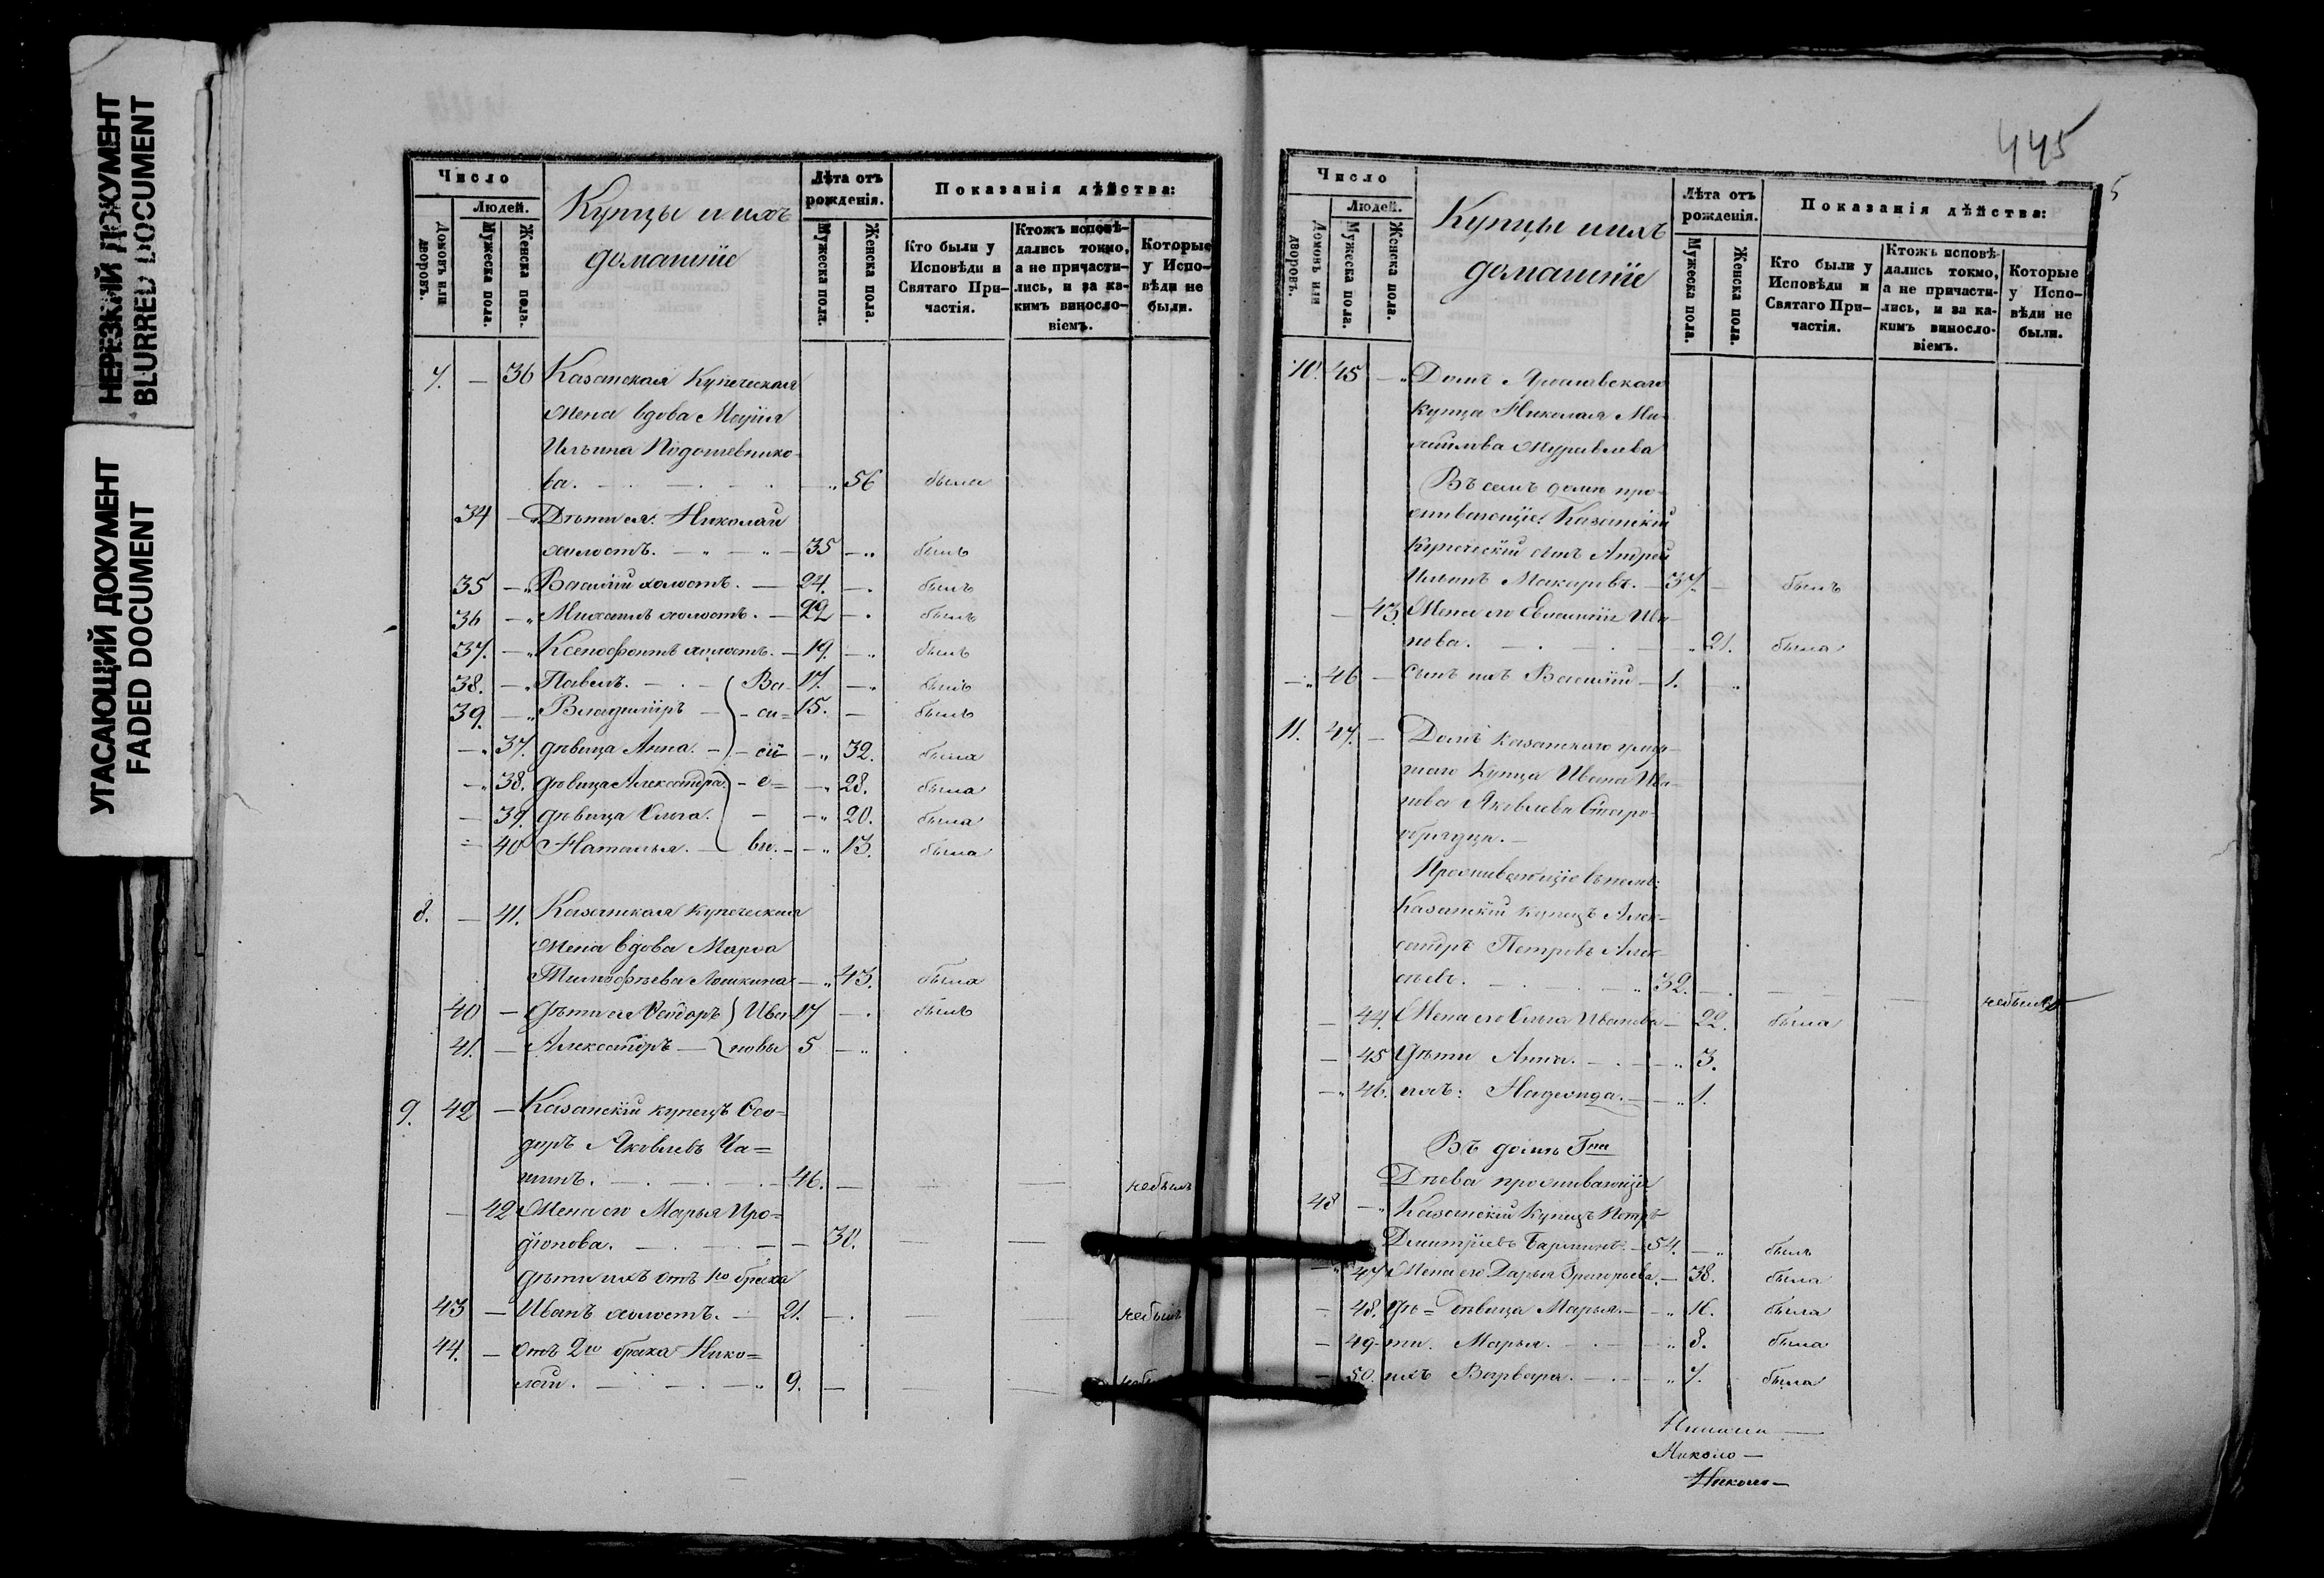 НЕРЕЗКИЙ ДОКУМЕНТ
BLURRED DOCUMENT
УГАСАЮЩИЙ ДОКУМЕНТ
FADED DOCUMENT
Число
Людей.
Домовъ или дворовъ.
Мужеска пола.
Женска пола.
Купцы и ихъ
домашніе
Лѣта отъ рожденія.
Мужеска пола.
Женска пола.
Показанія дѣйства:
Кто были у Исповѣди и Святаго Причастія.
Ктожъ исповѣдались токмо, а не причастились, и за какимъ винословіемъ.
Которые у Исповѣди не были.
7. — 36 Казанская Купеческая
жена вдова Марія
Ильина Подошевнико-
ва. 56 была
34 — Дѣти ея: Николай
холостъ. 35 — былъ
35 — Василій холостъ. — 24. — былъ
36 — Михаилъ холостъ. — 22 — былъ
37. — Ксенофонтъ холостъ. — 19. — былъ
38. — Павелъ. — Ва- 17. — былъ
39. — Владиміръ — си= 15. — былъ
— 37. дѣвица Анна. — 32. была
— 38. дѣвица Александра. — е= — 28. была
— 39. дѣвица Ольга. — 20. была
40 Наталья. — вы. — 13. была
8. — 41. Казанская купеческая
жена вдова Марѳа
Тимофѣева Лошкина — 43. была
40 — дѣти ея Ѳедоръ Ива- 17 — былъ
41. — Александръ — новы 5 —
9. 42 — Казанскій купецъ Ѳео=
доръ Яковлевъ Ча=
шинъ. — 46. — небылъ
— 42 Жена его Марья Иро=
діонова. — 30. —
дѣти ихъ отъ 1го брака
43 — Иванъ холостъ. — 21. — небылъ
44. — отъ 2го брака Нико=
лай. — 9. —
445
5
Число
Людей.
Домовъ или дворовъ.
Мужеска пола.
Женска пола.
Купцы и ихъ
домашніе
Лѣта отъ рожденія.
Мужеска пола.
Женска пола.
Показанія дѣйства:
Кто были у Исповѣди и Святаго Причастія.
Ктожъ исповѣдались токмо, а не причастились, и за какимъ винословіемъ.
Которые у Исповѣди не были.
10. 45 — Домъ
купца Николая Ми-
хайлова Муравлева
Въ семъ домѣ про-
живающіе: Казанскій
Купеческій сынъ Андрей
Ильинъ Макаровъ. — 37. — былъ
— 43. Жена его Евлампія Ива-
нова. 21. была
— 46 — сынъ ихъ Василій — 1. —
11. 47. — Домъ Казанскаго
Купца Ивана Ива-
нова Яковлева Старо-
обрядца. —
Проживающіе въ немъ:
Казанскій купецъ Алек-
сандръ Петровъ Алек-
сѣевъ. 32. — небылъ
— 44. Жена его Ольга Иванова — 22. была
— 45 Дѣти Анна. — 3.
— 46. ихъ: Надежда. — 1.
Въ домѣ Гна
Дѣева проживающіе
48 — Казанскій Купецъ Петръ
Дмитріевъ — 54. — былъ
47 Жена его Дарья Григорьева. — 38. была
— 48. дѣ= дѣвица Марья. — 16. была
— 49 ти. Марья. — 8. была
— 50. ихъ Варвара. — 7. была
Николо —
Николо —